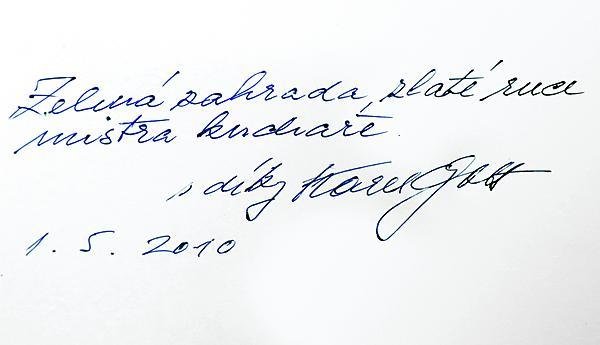 Zelená zahrada, zlaté ruce
mistra kuchaře.
s díky Karel Gott
1. 5. 2010